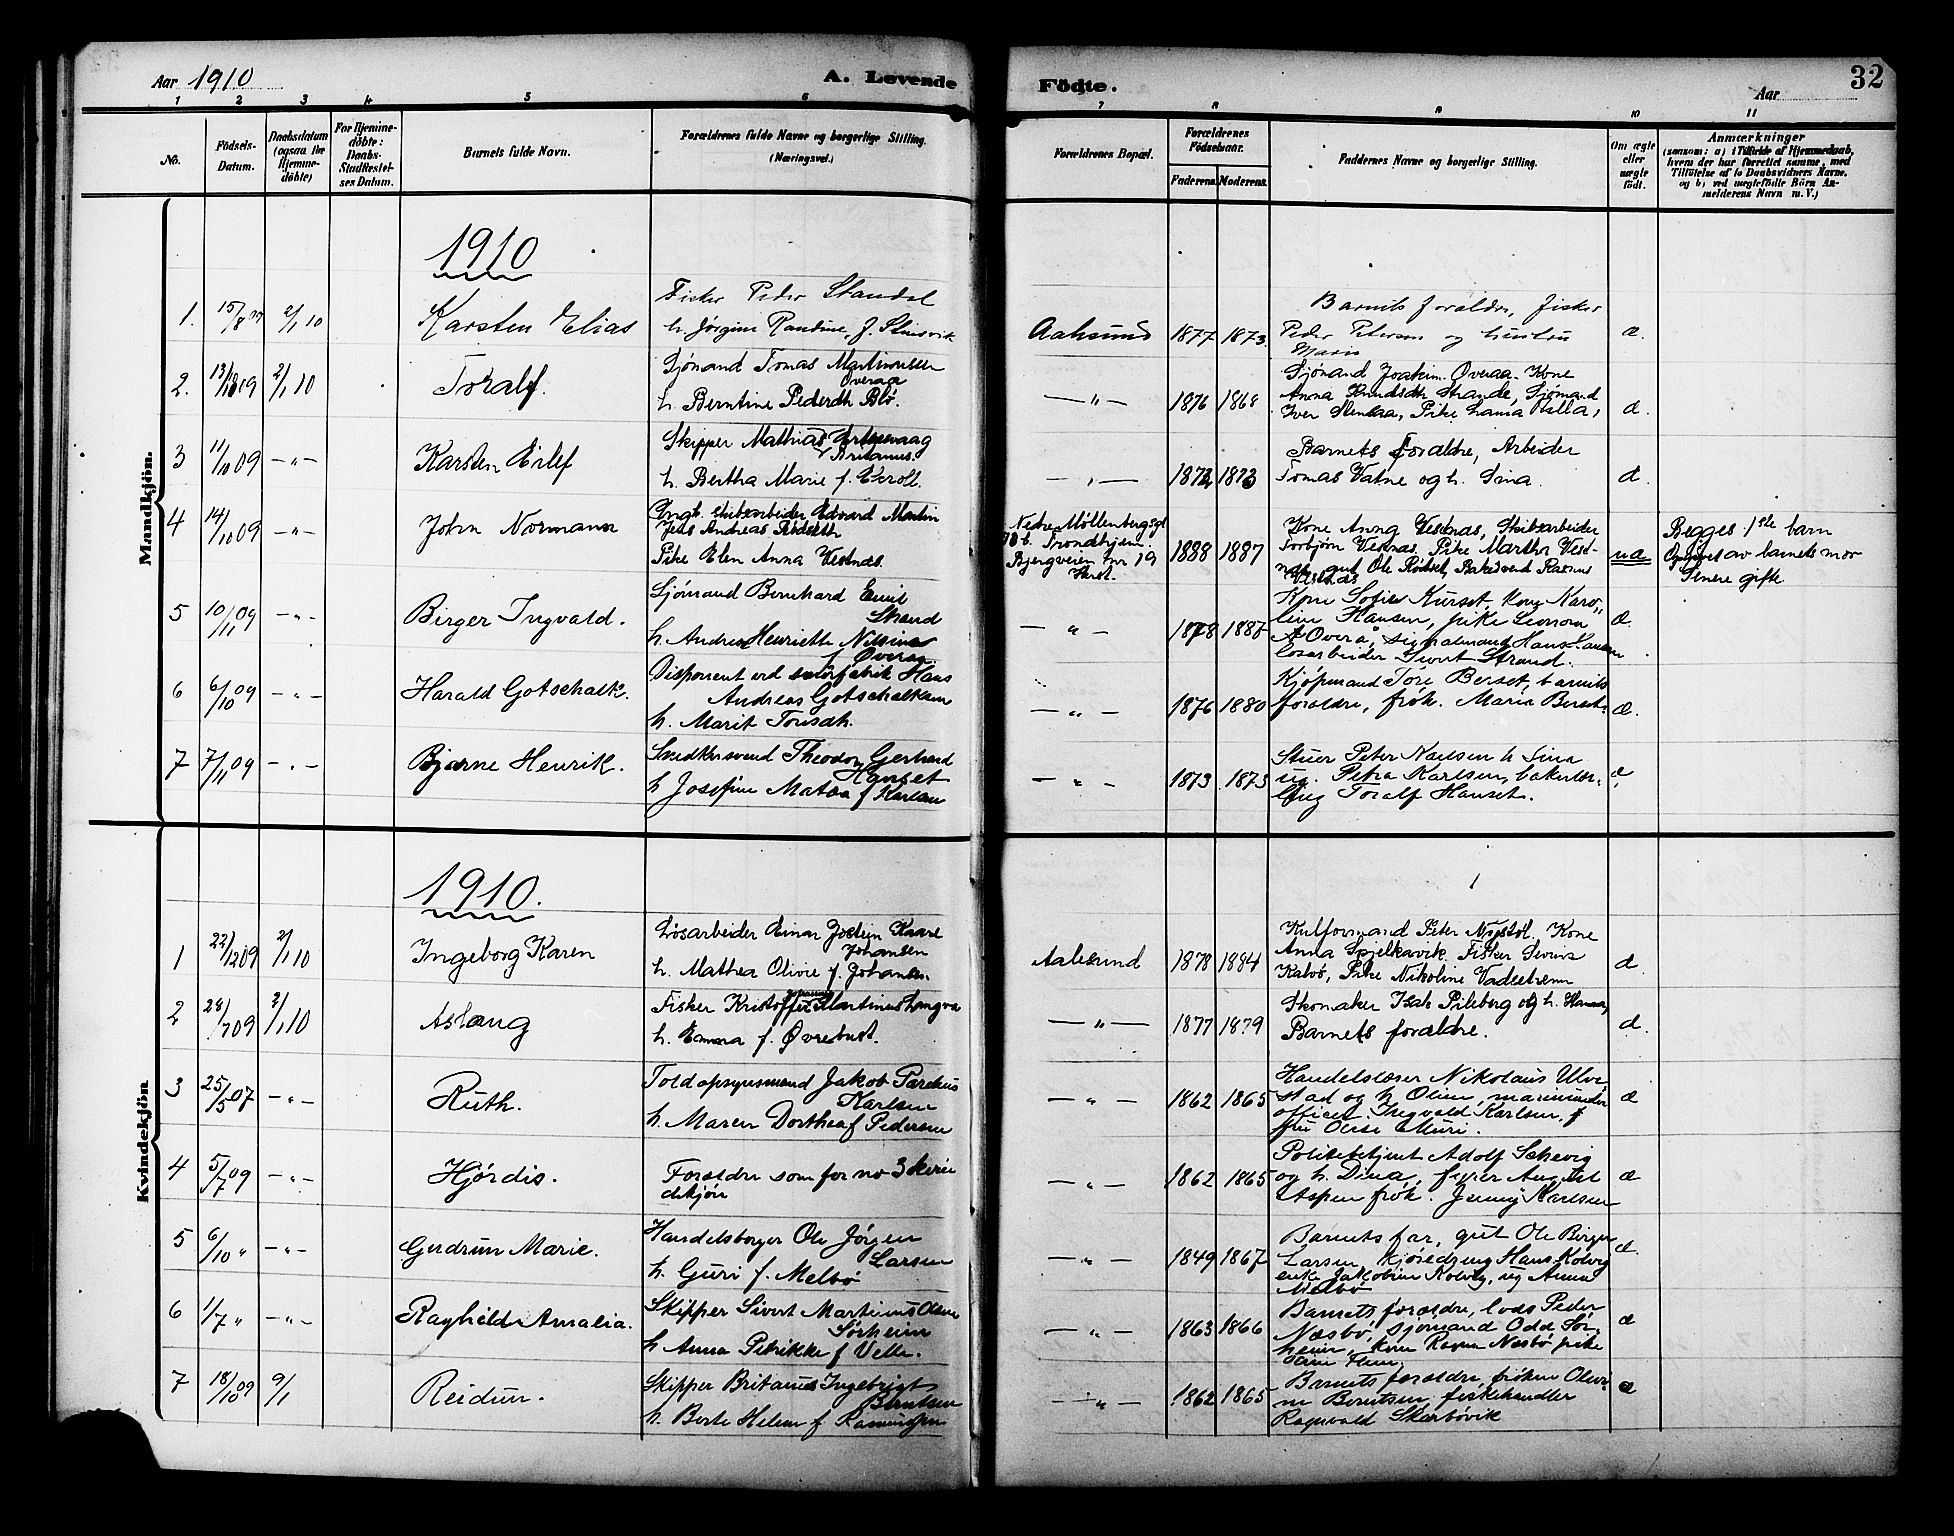 Aar 1910
A. Levende
Födte.
Aar
32
1 2 3 4 5 6 7 8 9 10 11
No.
Födsels-
Datum.
Daabsdatum
(ogsaa for
Hjemme-
döbte)
For Hjemme-
döbte:
Daabs-
Stadfæstel-
ses Datum.
Barnets fulde Navn.
Forældrenes fulde Navne og borgerlige Stilling.
(Næringsvei.)
Forældrenes Bopæl.
Forældrenes
Födselsaar.
Faderens. Moderens.
Faddernes Navne og borgerlige Stilling.
Om ægte
eller
uægte
födt.
Anmærkninger
(saasom: a) i Tilfælde af Hjemmedaab,
hvem der har forrettet samme, med
Tilföielse af to Daabsvidners Navne,
og b) ved uægtefödte Börn An-
melderens Navn m. V.)
Mandkjön.
1910
1. 15/8 09 2/1 10 Karsten Elias
Fisker Peder Standal
h. Jørgine Randine f.
Aalesund 1877 1873.
Barnets forældre, fisker
Peder Petersen og hustru
Marie
æ
2. 13/ 09 2/1 10 Toralf.
Sjömand Tomas Martinussen
Overaa
h. Berntine Pedersdtr Blö.
—„— 1876 1868
Sjömand Joakim Overaa. Kone
Anna Knudsdtr Strande, Sjömand
Iver Stenaa, Pike Lama
æ.
3 11/10 09 -„- Karsten Erlef
Skipper Mathias
Britanus.
h. Bertha Marie f.
—„— 1873
Barnets Forældre, Arbeider
Tomas Vatne og h. Sina.
æ.
4 14/10 09 -„- John Normann
Ungk. skibsarbeider Edvard Martin
Jens Andreas Rödseth
Pike Elen Anna Vestnæs.
Nedre Möllenbergsgt
Trondhjem.
Bjergveien nr 19
1888 1887
Kone Anna Vestnæs, Skibsarbeider
Torbjörn Vestnæs, Pike Martha Vest-
næs, gut Ole Rödset, Bakersvend Rasmus
Vestnæs
uæ
Begges 1ste barn
Opgivet av barnets mor
Senere gifte
5 10/11 09 -„- Birger Ingvald.
Sjömand Bernhard Emil
Strand
h. Andrea Henriette Nilsine
f Overaa
-„- 1878 1888
Kone Sofie Kurset, kone Karo„
line Hansen, pike Leonora
Overå, Hans Larsen
løsarbeider Sivert Strand.
æ.
6 6/10 09 -„- Harald Gotschalk.
Disponent ved smörfabrik Hans
Andreas Gotschalksen
h. Marit Toresdtr.
—„- 1876 1880
Kjöpmand Tore Berset, barnets
forældre, frøk. Maria Berset.
æ.
7 7/11 09 -„- Bjarne Henrik.
Snedkersvend Theodor Gerhard
Hanset
h Josefine Matea f Karlsen
—„- 1873 1873
Stuer Peter Naelsen h Sina
ug. Petra Karlsen, bakerlær-
ling Toralf Hanset.
æ
Kvindekjön
1910.
1 22/12 09 2/1 10 Ingeborg Karen
Løsarbeider Einar Jostein Kaare
Johansen
h. Mathea Olivie f. Johansen.
Aalesund 1878 1884
Kulformand Peter Nystöl. Kone
Anna Spjelkavik. Fisker Sivert
Kalvö, Pike Nikoline Vadsetrenn
æ.
2 28/7 09 2/1 10 Aslaug
Fisker Kristoffer Martinus Longva
h. Emma f. Øvrebust.
—„— 1877 1879
Skomaker Isak Pileberg og h. Hanna,
Barnets forældre.
æ.
3 25/5 07 -„- Ruth.
Toldopsynsmand Jakob Parelius
Karlsen
h. Maren Dorthea f Pedersen
-„- 1862 1865
Handelsreiser Nikolaus Ulve
stad og h Oline, marineunder
officer Ingvald Karlsen, f
fru Olise Muri.
æ
4 5/7 09 -„- Hjördis.
Forældre som for no 3 kvin
dekjøn
-„- 1862 1865
Politibetjent Adolf Schevig
og h. Dina, fyrer August
Aspen frøk. Jenny Karlsen
æ
5 6/10 „ -„- Gudrun Marie.
Handelsborger Ole Jørgen
Larsen
h. Guri f. Melbö
-„- 1849 1867
Barnets far, gut Ole Birger
Larsen, Hans Kolvig
enke Jakobine Kolvig, ug Anna
Melbö
æ.
6 1/7 „ -„- Ragnhild Amalia.
Skipper Sivert Martinus Olsen
Sörheim
h Anna Petrikke f Velle.
—„- 1863 1866
Barnets forældre, lods Peder
Næsbö, sjömand Odd Sör-
heim, kone Ragna Næsbö pike
Flem
æ
7 18/10 09 9/1 Reidun.
Skipper Britanus Ingebrigt
Berntsen
h. Berte Helene f Rasmussen
-„- 1862 1865
Barnets forældre, frøken Olevi-
ne Berntsen, fiskehandler
Ragnvald Skarbövik
æ